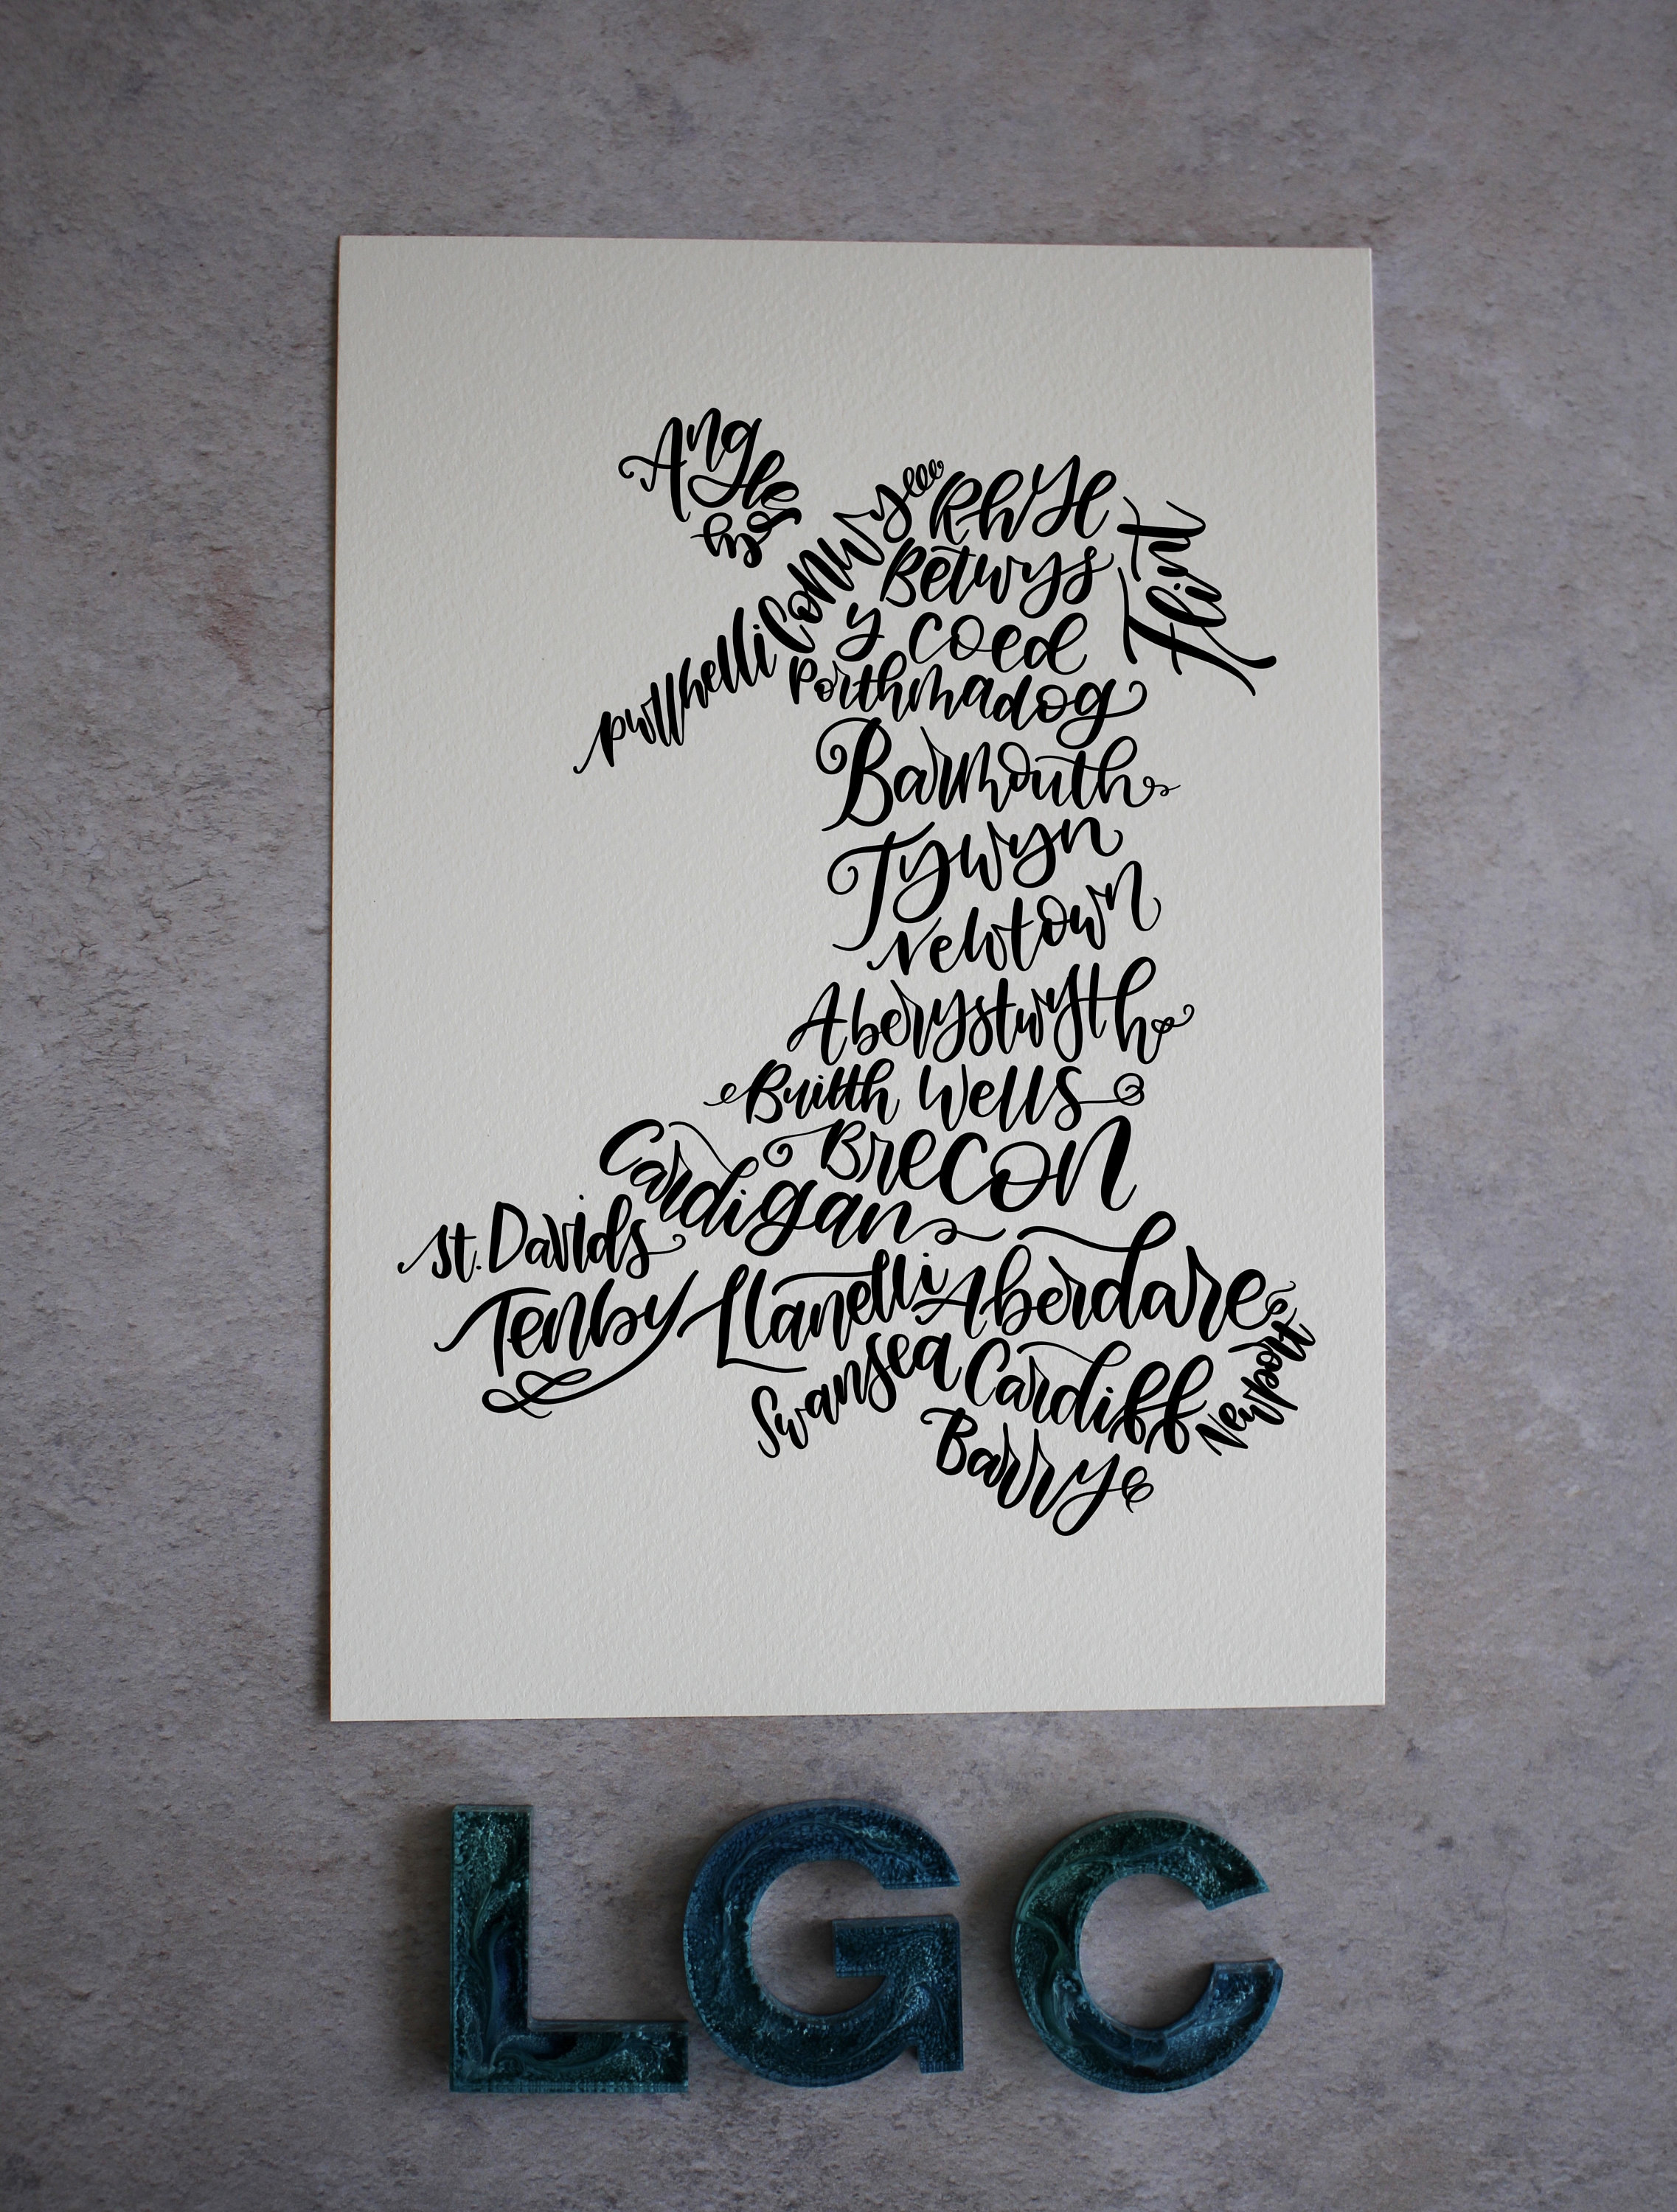 Anglesey
Conwy
Rhyl
Flint
Betwys
y Coed
Pwllhelli
Porthmadog
Barmouth
Tywyn
Newtown
Aberystwyth
Builth Wells
Brecon
Cardigan
St. Davids
Tenby
Llanelli
Aberdare
Swansea
Cardiff
Newport
Barry
LGC